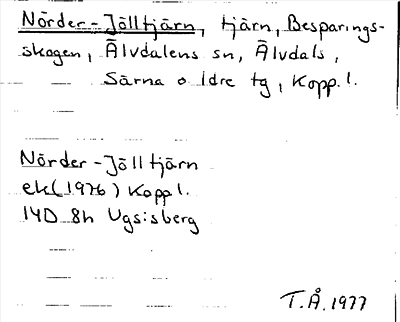 Nörder-Jölltjärn, tjärn, Besparings-
skogen, Älvdalens sn, Älvdals,
Särna o Idre tg, Kopp. l.
Nörder-Jölltjärn
ek (1976) Kopp l.
14D 8h Ugsisberg
T.Å. 1977